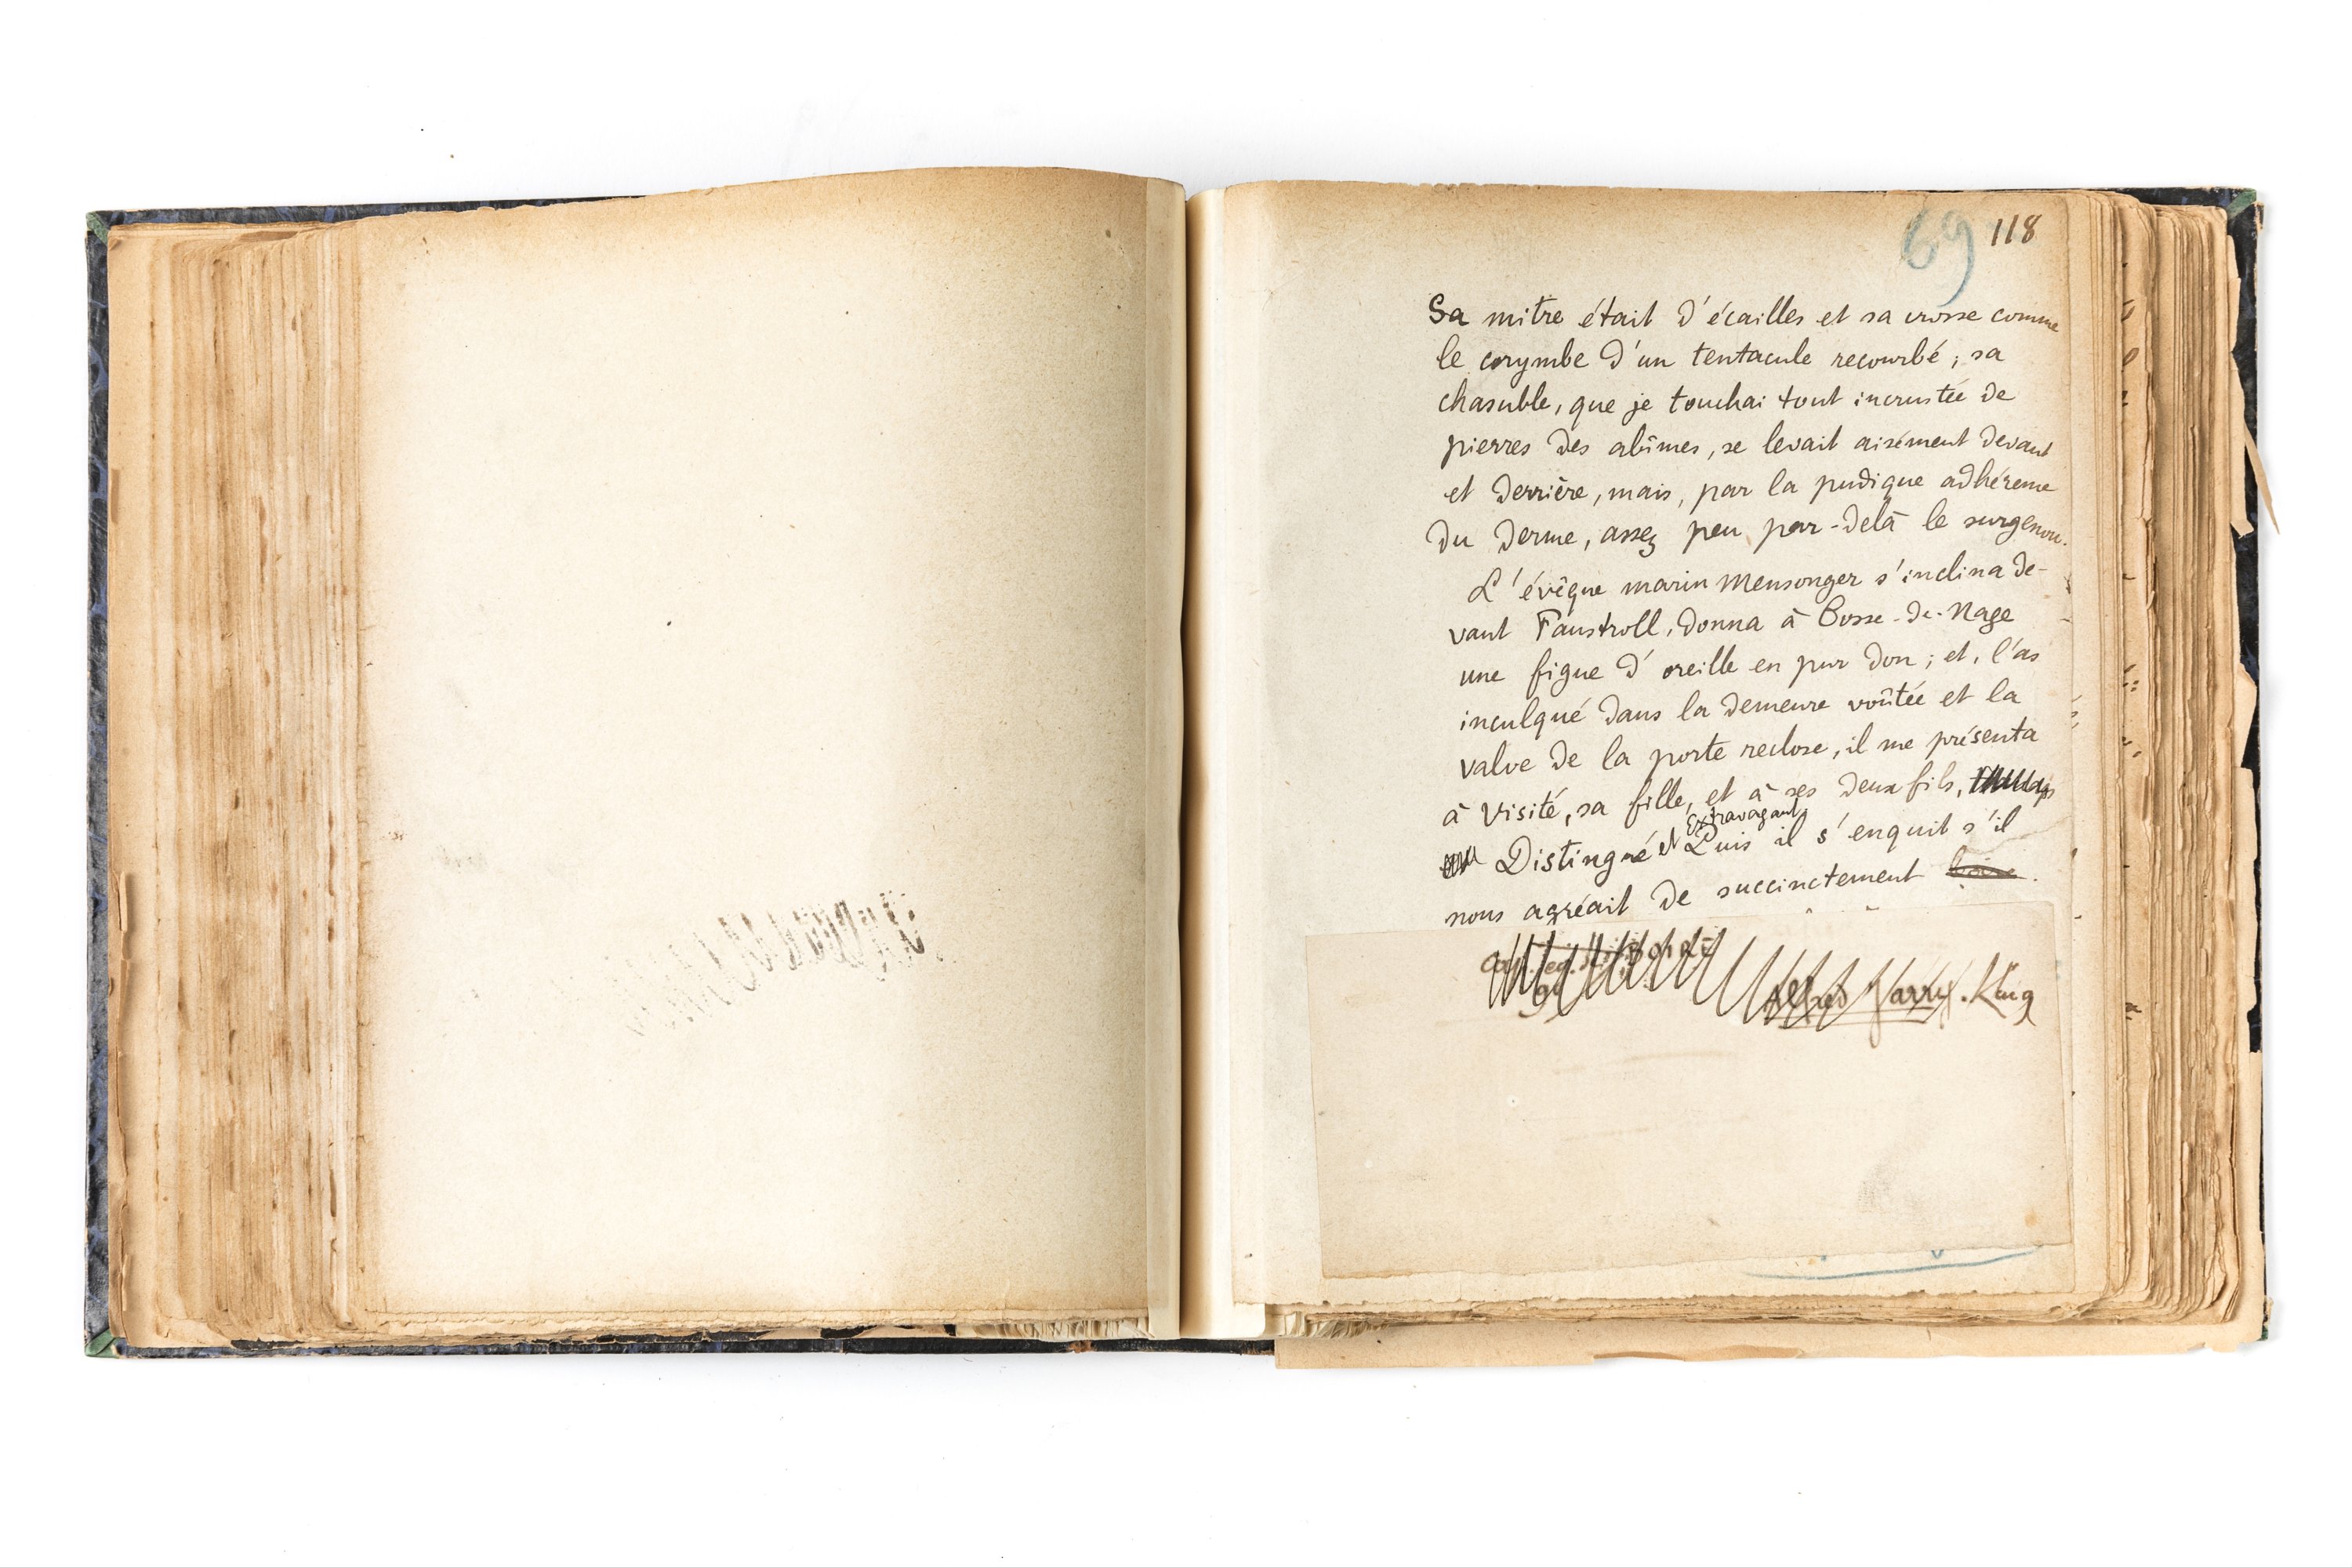 69 118
Sa mitre était d'écailles et sa crosse comme
le corymbe d'un tentacule recourbé ; sa
chasuble, que je touchai tout incrustée de
pierres des abîmes, se levait aisément devant
et derrière, mais, par la pudique adhérence
du derme, assez peu par-delà le surgenou.
L'évêque marin Mensonger s'inclina de-
vant Faustroll, donna à Bosse-de-Nage
une figue d'oreille en pur don ; et, l'as
inculqué dans la demeure voûtée et la
valve de la porte reclose, il me présenta
à Visité, sa fille, et à ses deux fils,
Extravagant
Distingué et Puis il s'enquit s'il
nous agréait de succinctement boire.
Alfred Jarry. King